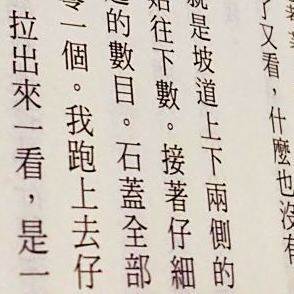 了又看，什麼也沒有
就是坡道上下兩側的
始往下數。接著仔細
的數目。石蓋全部
零一個。我跑上去仔
拉出來一看，是一